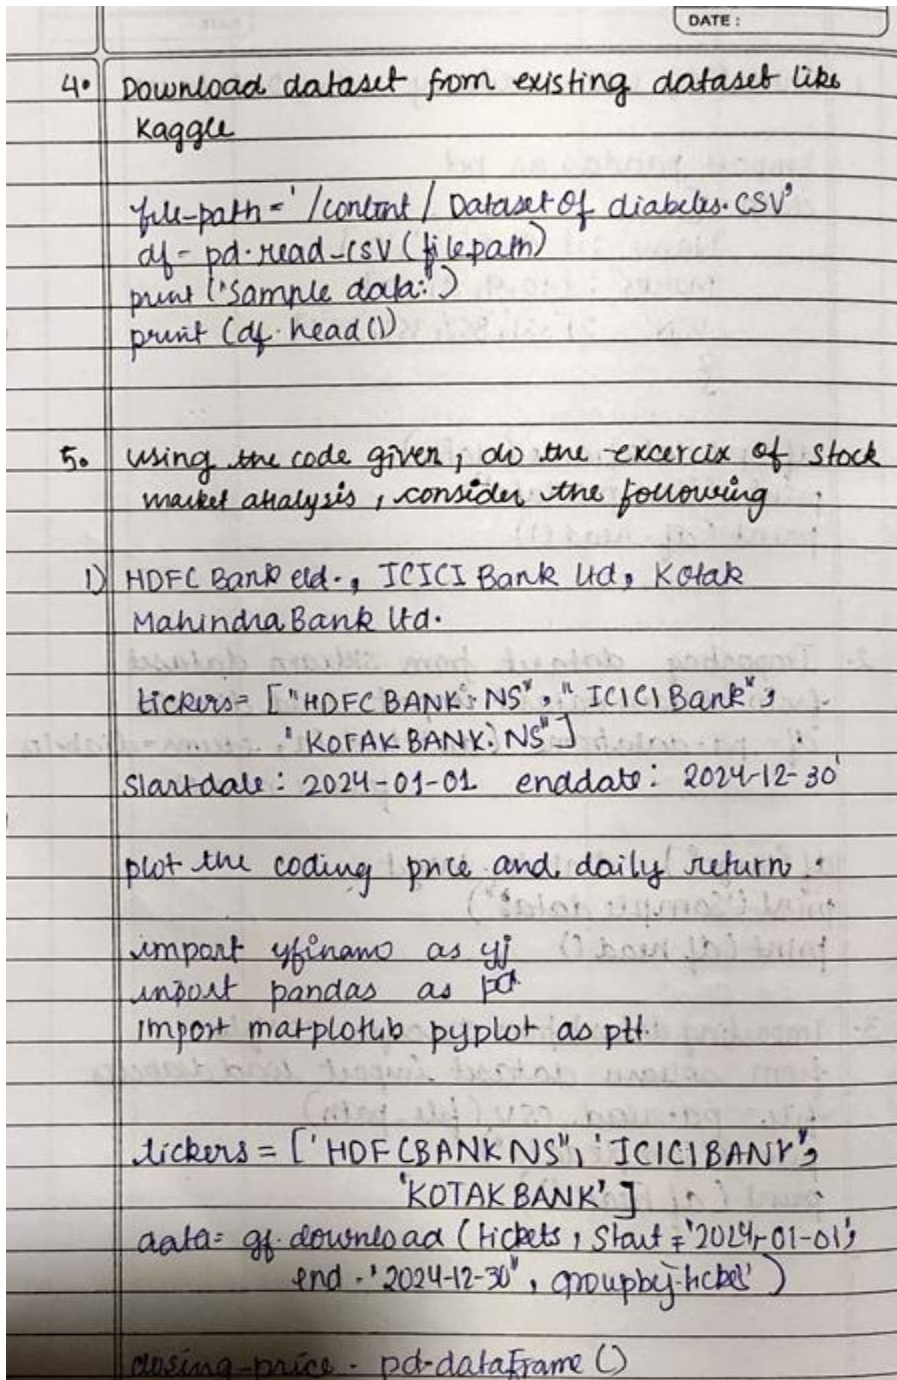 DATE :
4. Download dataset from existing dataset like
Kaggle
file-path = '/content/Dataset Of diabetes.CSV'
df - pd.read_CSV (filepath)
print ("Sample data:")
print (df.head())
5. using the code given, do the excercix of stock
market analysis, consider the following
1) HDFC Bank Ltd., ICICI Bank Ltd, Kotak
Mahindra Bank Ltd.
tickers= ["HDFC BANK.NS", "ICICI Bank",
"KOTAK BANK.NS"]
Startdate : 2024-01-01 enddate : 2024-12-30
plot the coding price and daily return.
import yfinano as yf
import pandas as pd
import matplotlib pyplot as plt.
tickers = ['HDFCBANK NS", 'ICICIBANK",
'KOTAK BANK']
data= yf.download (tickets, Start = '2024-01-01',
end - '2024-12-30", groupby-ticket')
closing-price - pd.dataframe ()